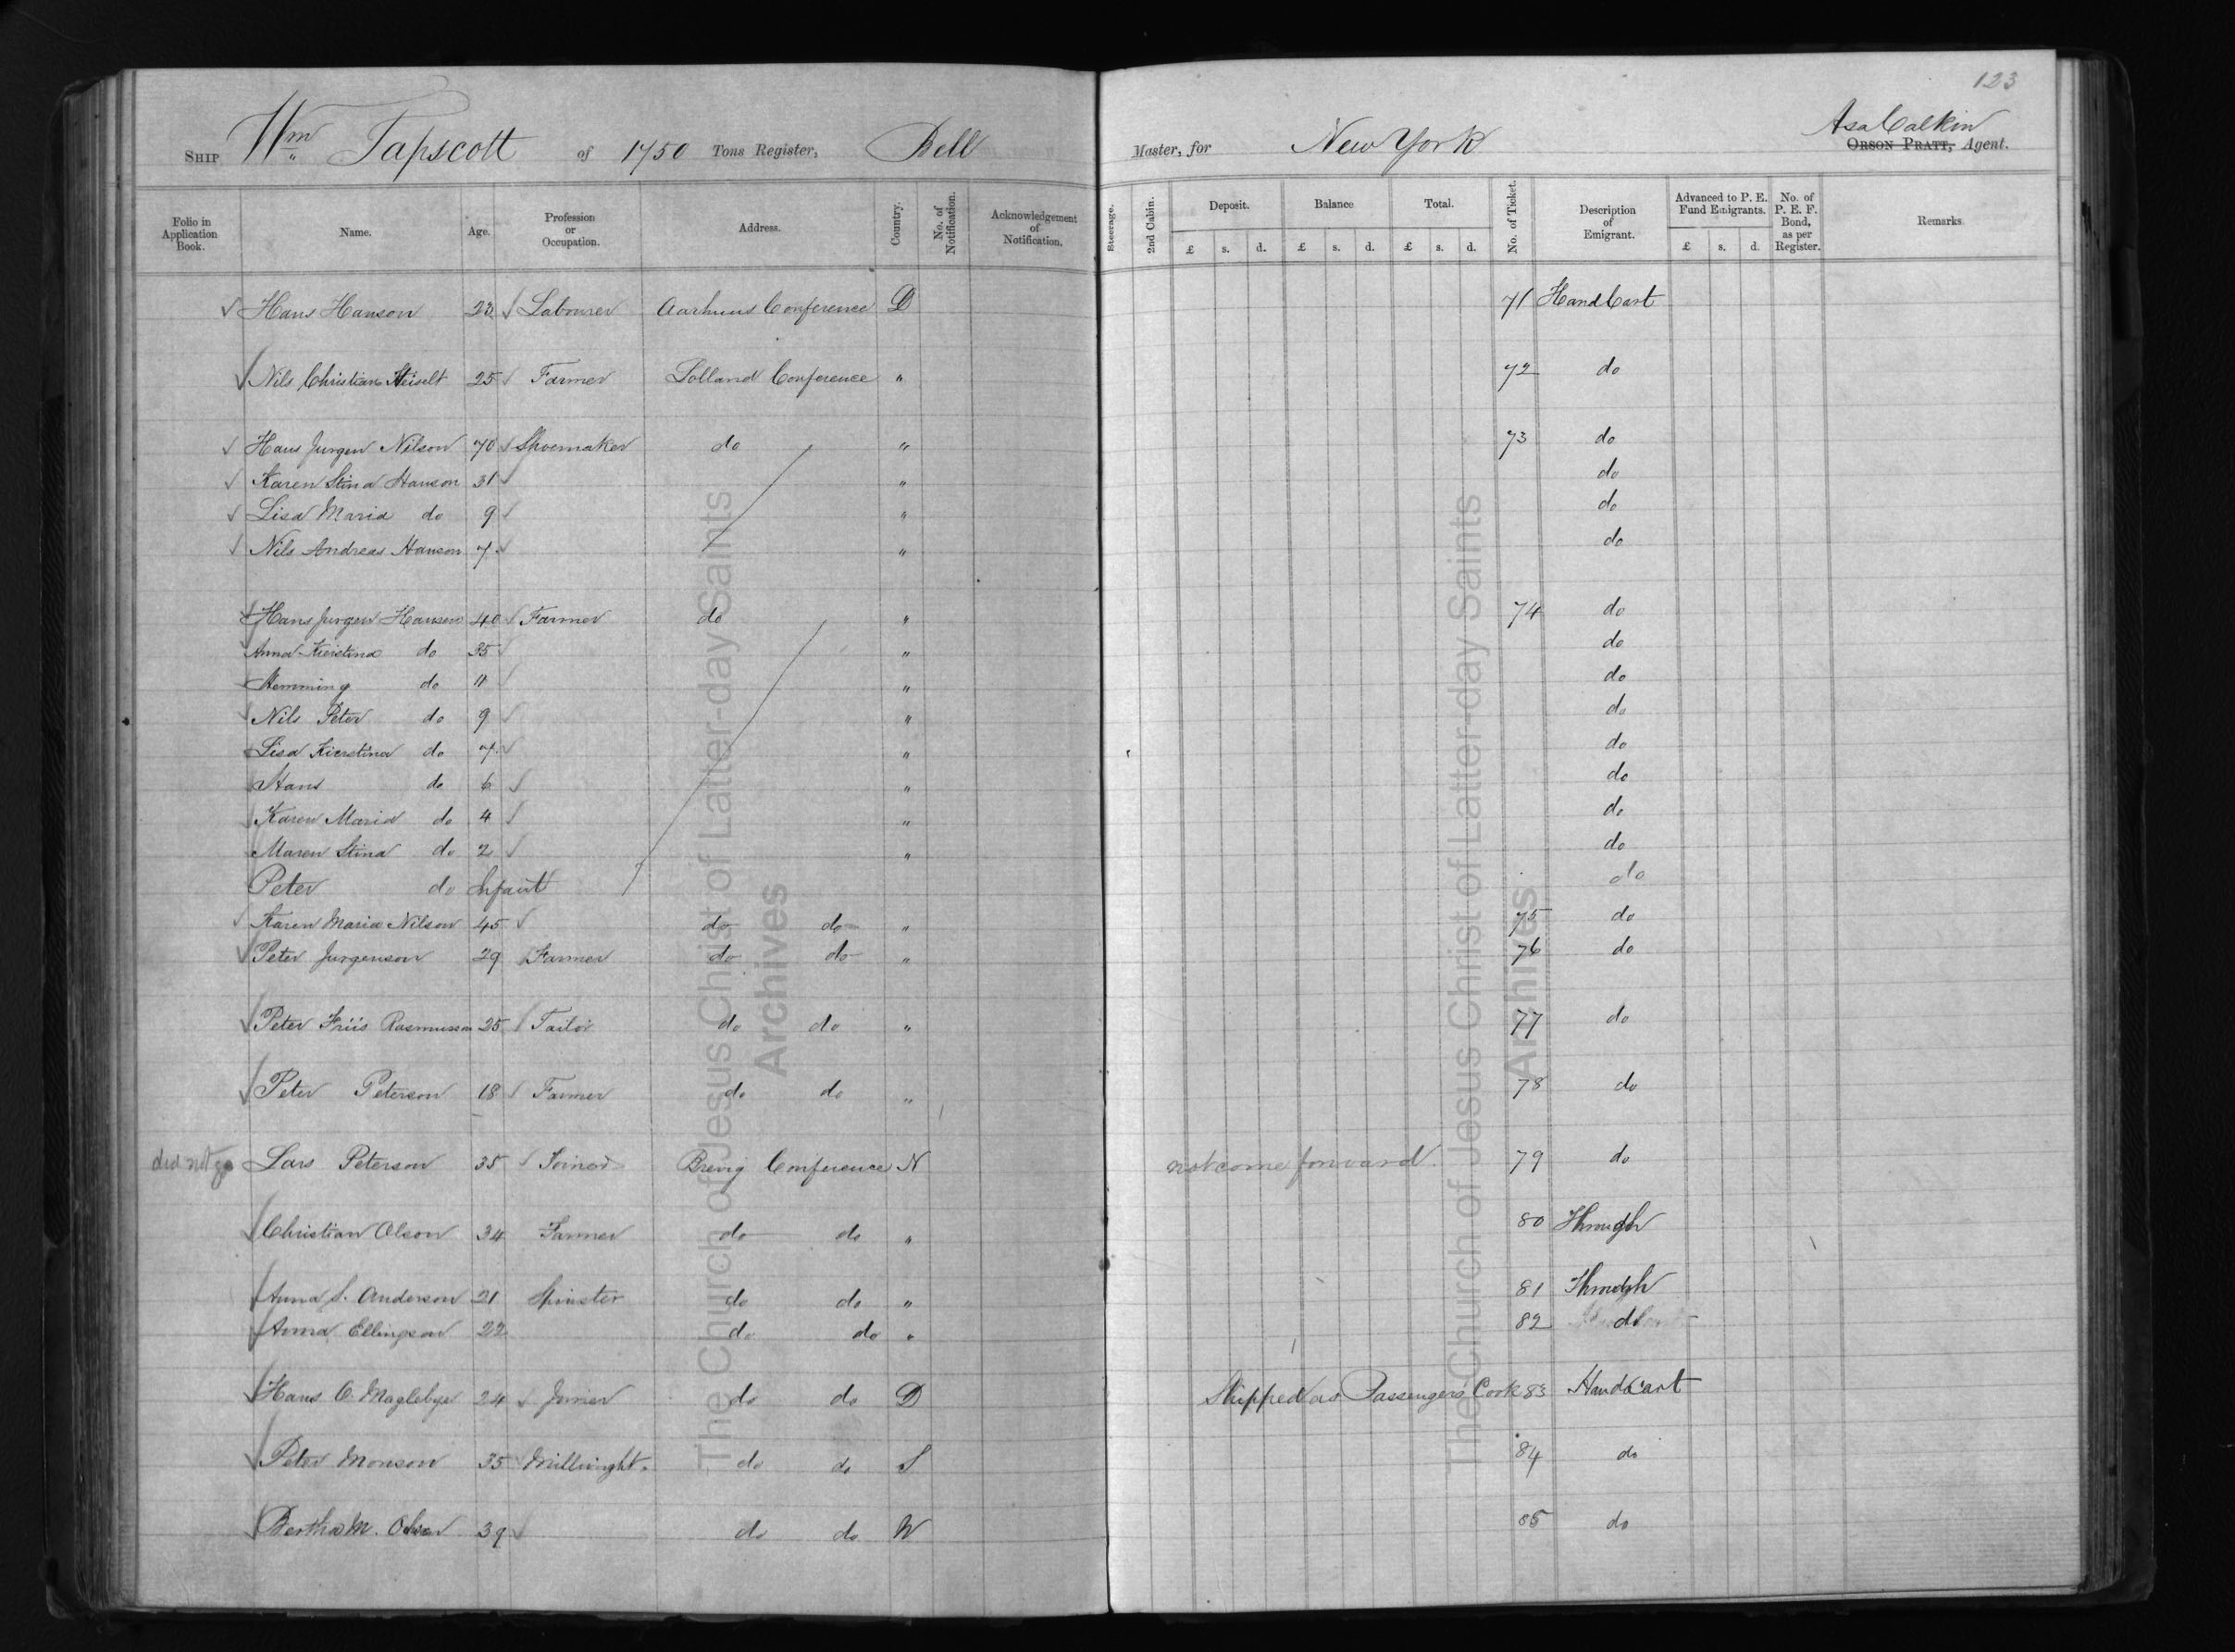 123
Ship Wm Tapscott of 1750 Tons Register, Bell Master, for New York Asa Calkin
Orson Pratt, Agent.
Folio in Application Book. Name. Age. Profession or Occupation. Address. Country. No. of Notification. Acknowledgement of Notification. Steerage. 2nd Cabin. Deposit. Balance Total. No. of Ticket. Description of Emigrant. Advanced to P. E. Fund Emigrants. No. of P. E. F. Bond, as per Register. Remarks
£ s. d. £ s. d. £ s. d. £ s. d.
✓ Hans Hanson 23 ✓ Labourer Aarhuus Conference D 71 Hand Cart
✓ Nils Christian Heiselt 25 ✓ Farmer Lolland Conference " 72 do
✓ Hans Jurgen Nilson 70 ✓ Shoemaker do " 73 do
✓ Karen Stina Hanson 31 ✓ " do
✓ Lisa Maria do 9 ✓ " do
✓ Nils Andreas Hanson 7 ✓ " do
✓ Hans Jurgen Hansen 40 ✓ Farmer do " 74 do
✓ Anna Kierstina do 35 ✓ " do
Hemming do 11 ✓ " do
✓ Nils Peter do 9 ✓ " do
Lisa Kierstina do 7 ✓ " do
Hans do 6 ✓ " do
Karen Maria do 4 ✓ " do
Maren Stina do 2 ✓ " do
Peter do Infant do
✓ Karen Maria Nilson 45 ✓ do do " 75 do
✓ Peter Jurgenson 29 Farmer do do " 76 do
✓ Peter Friis Rasmussen 25 ✓ Tailor do do " 77 do
✓ Peter Peterson 18 ✓ Farmer do do " 78 do
did not go Lars Peterson 35 ✓ Joiner Brevig Conference N not come forward 79 do
✓ Christian Olson 34 Farmer do do " 80 Through
✓ Anna S. Anderson 21 Spinster do do " 81 Through
✓ Anna Ellingson 22 do do " 82 do
✓ Hans O. Magleby 24 ✓ Joiner do do D Shipped as Passengers Cook 83 Hand Cart
✓ Peter Monson 35 ✓ Millwright do do S 84 do
✓ Bertha M. Olsen 39 ✓ do do N 85 do
The Church of Jesus Christ of Latter-day Saints
Archives
The Church of Jesus Christ of Latter-day Saints
Archives